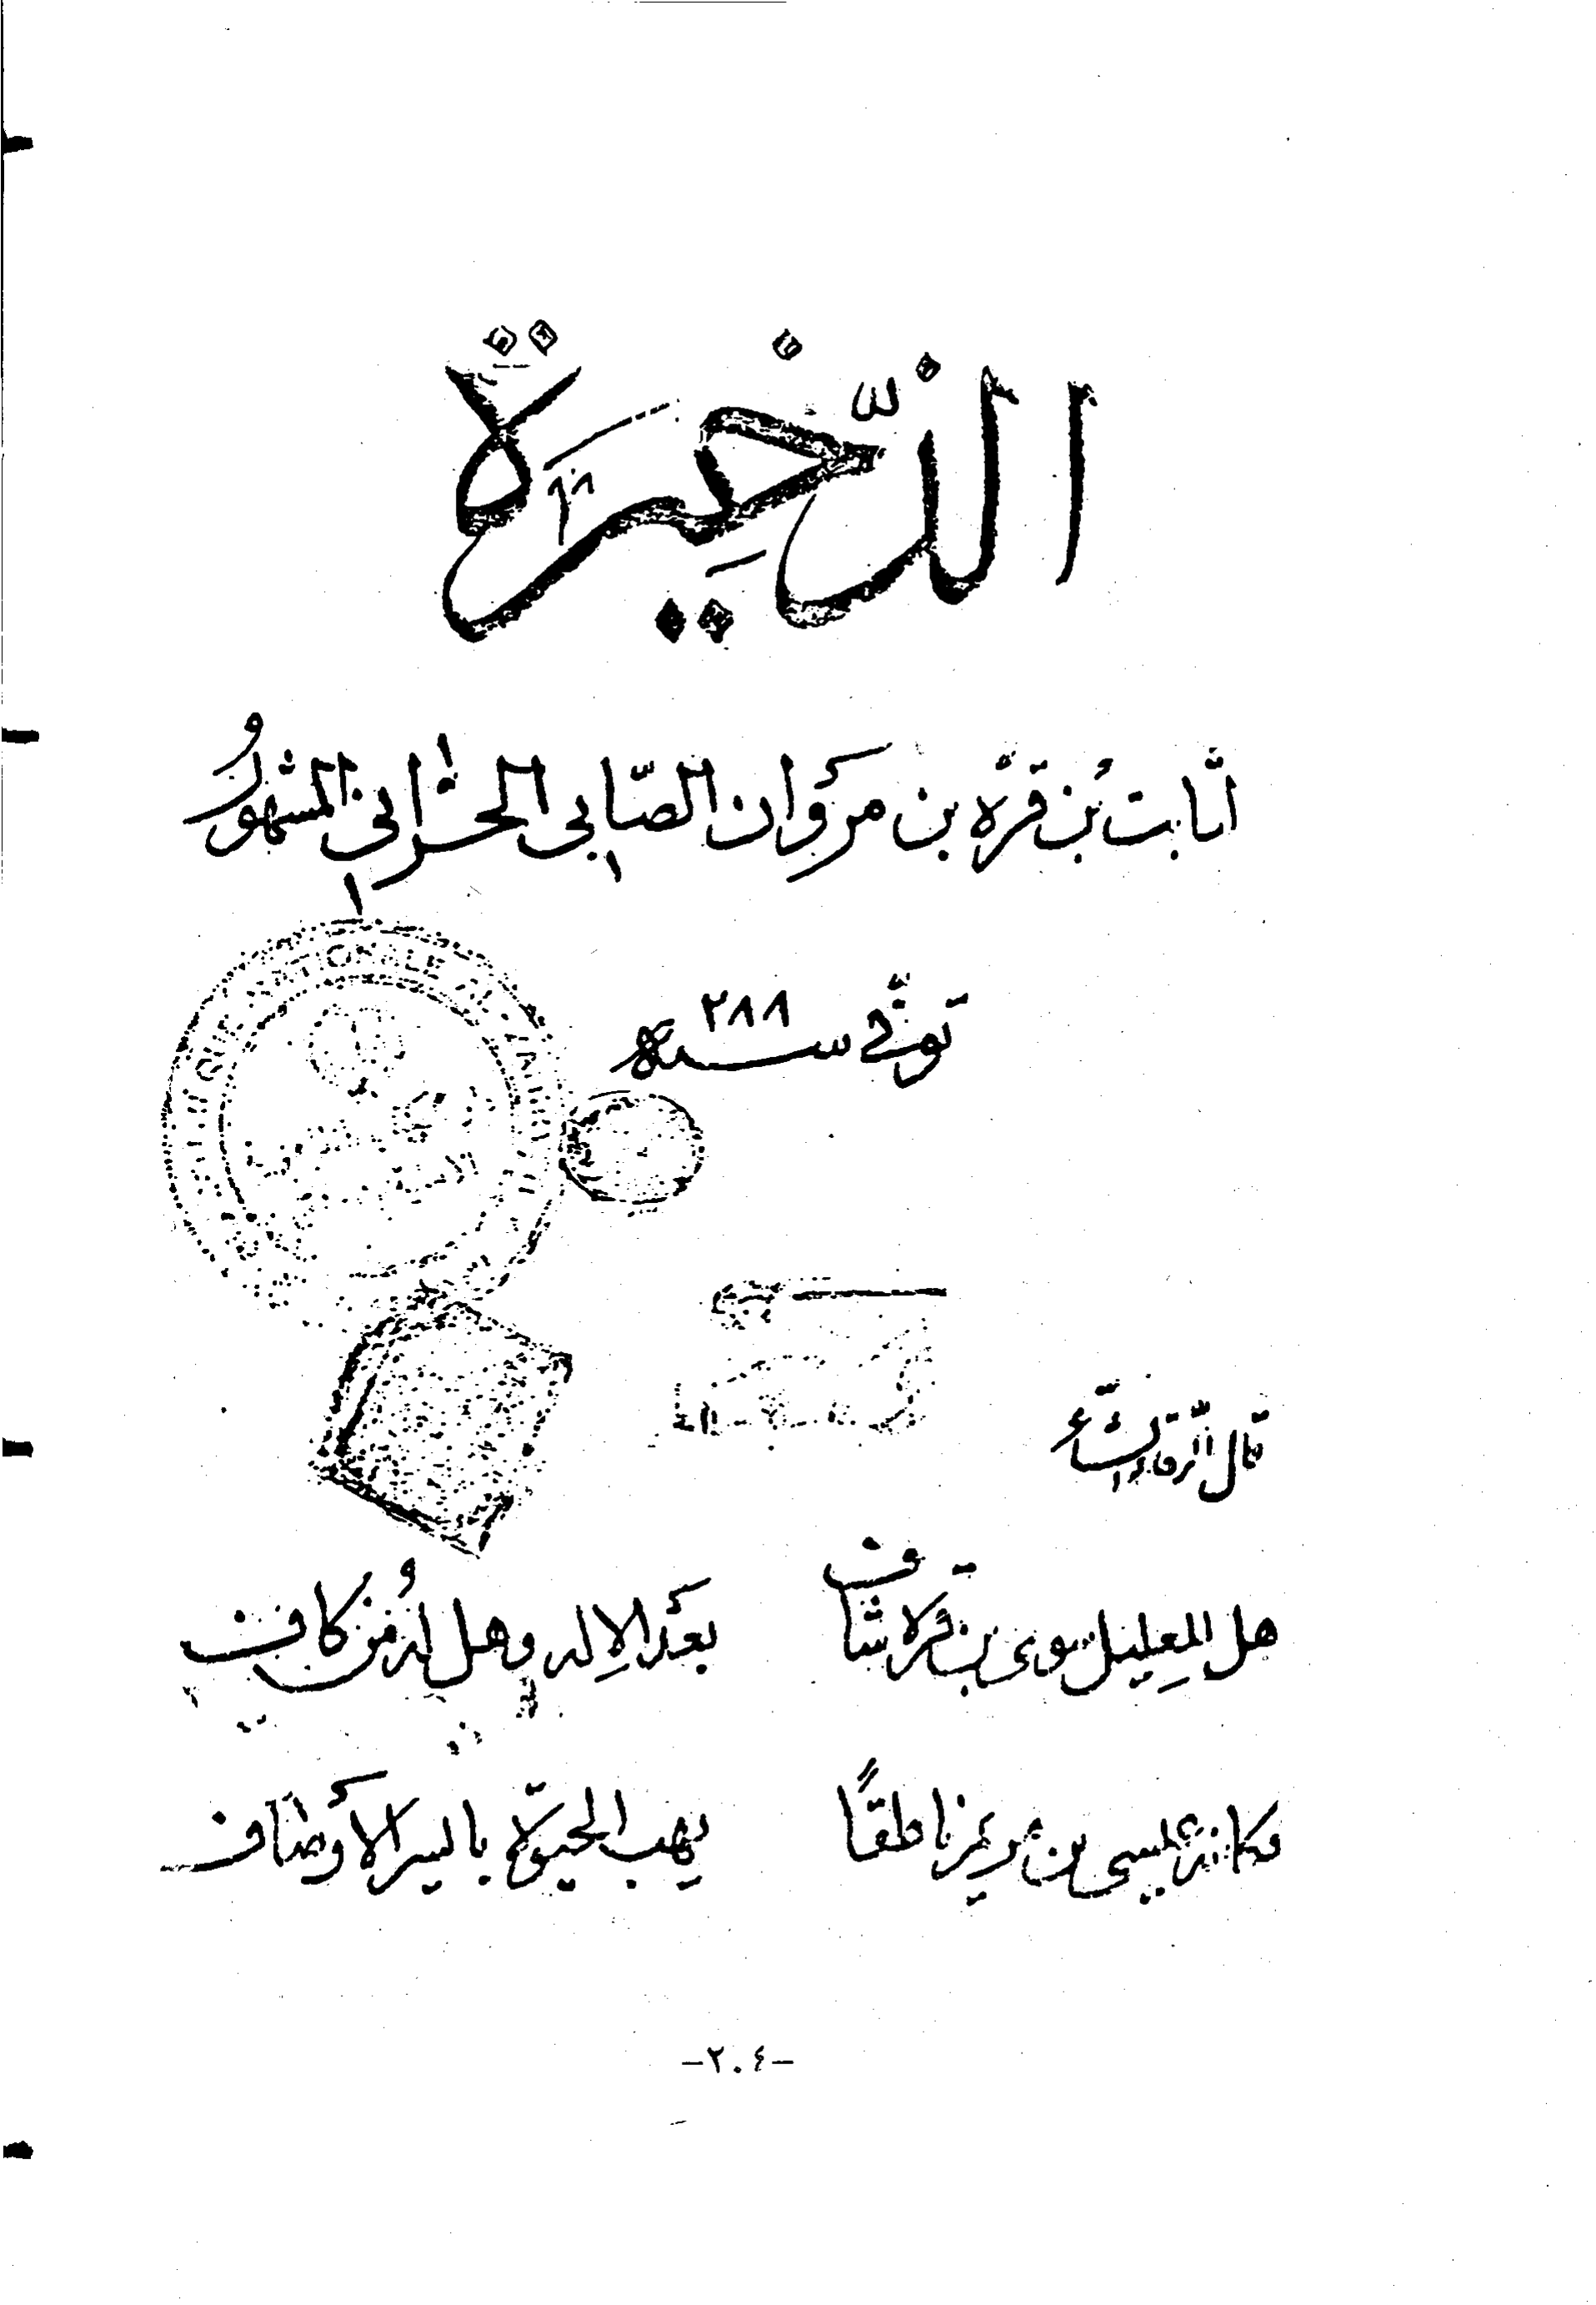 الذَّخِيرَة
لثابت بن قرّه بن مَروان الصّابي الحرّاني المشهورُ
توفّى سنه ٢٨٨
NATIONALE
قال السّرّى الرّفاء الشّاعر
هل للعليل سوى بن قرة شاف
بعَد الاِله وهل له من كاف
فكانه عيسى بن مريم ناطقًا
يهب الحيوة بايسر الاَوصاف
-٢٠٤-